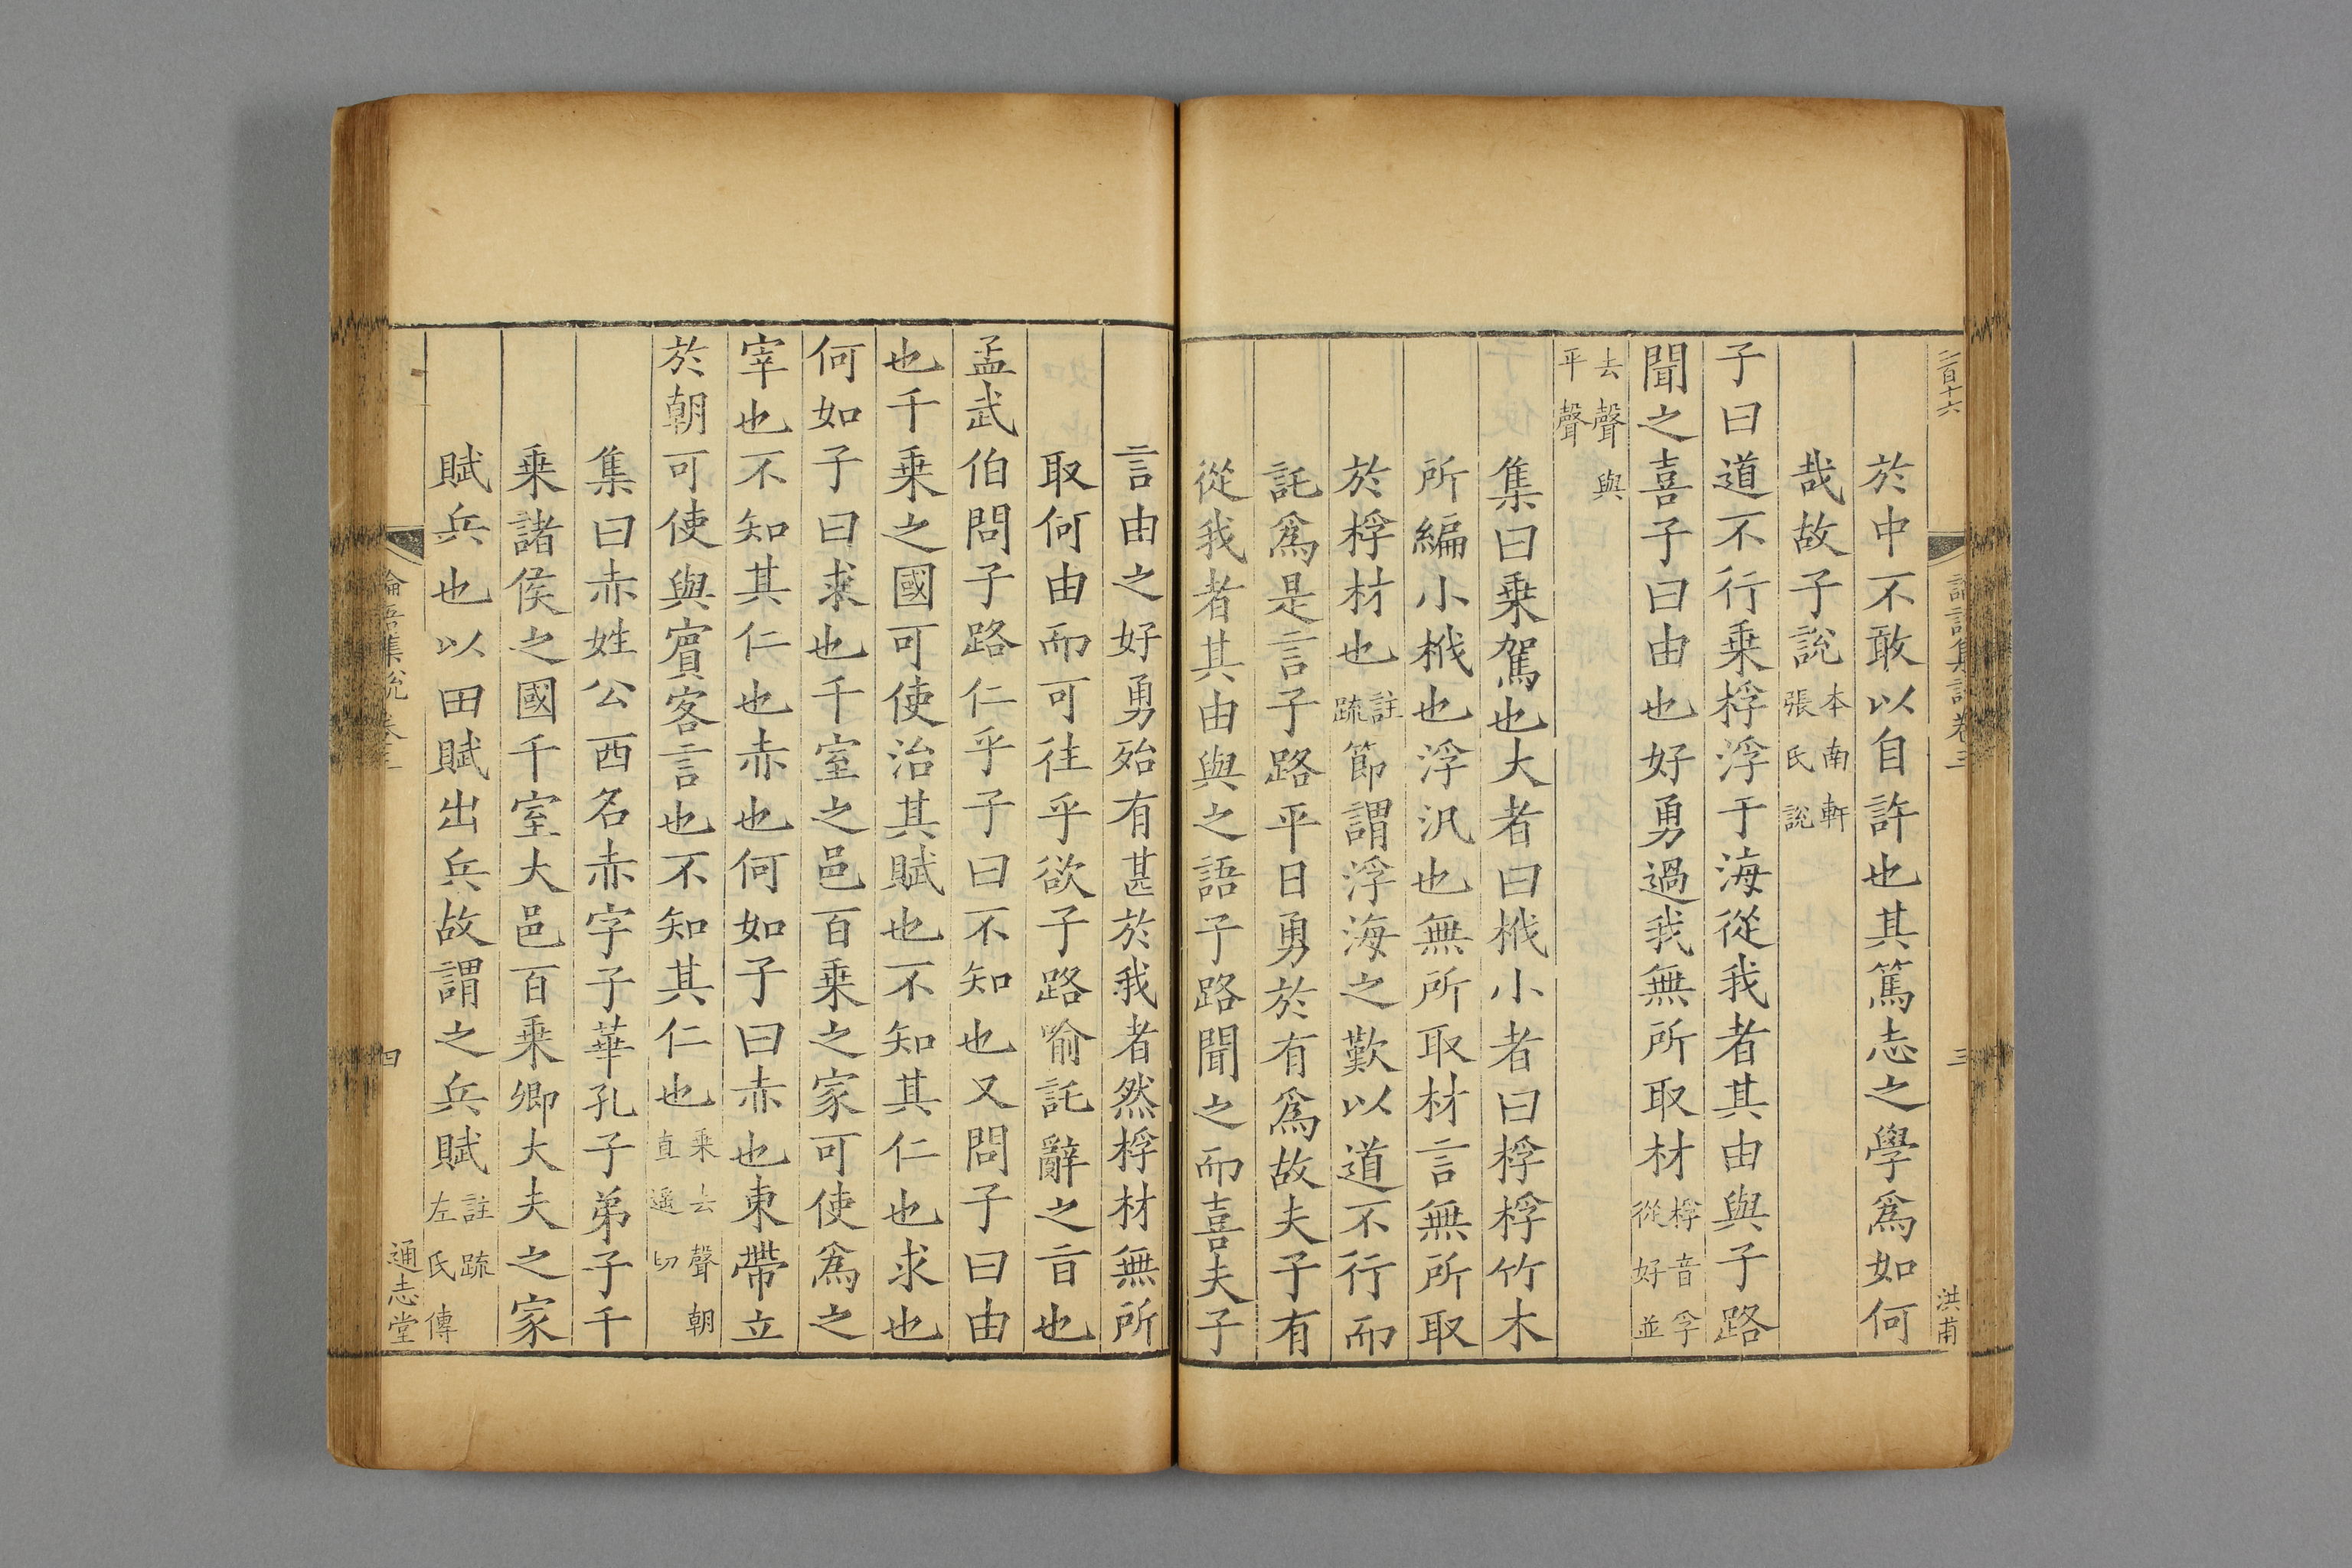 二百十六
論語集說卷三
三
洪甫
於中不敢以自許也其篤志之學爲如何
哉故子說本南軒張氏說
子曰道不行乗桴浮于海從我者其由與子路
聞之喜子曰由也好勇過我無所取材桴音孚從好並
去聲與平聲
集曰乗駕也大者曰栰小者曰桴桴竹木
所編小栰也浮汎也無所取材言無所取
於桴材也註疏節謂浮海之歎以道不行而
託爲是言子路平日勇於有爲故夫子有
從我者其由與之語子路聞之而喜夫子
言由之好勇殆有甚於我者然桴材無所
取何由而可往乎欲子路喻託辭之㫖也
孟武伯問子路仁乎子曰不知也又問子曰由
也千乗之國可使治其賦也不知其仁也求也
何如子曰求也千室之邑百乗之家可使爲之
宰也不知其仁也赤也何如子曰赤也束帶立
於朝可使與賔客言也不知其仁也乗去聲朝直遥切
集曰赤姓公西名赤字子華孔子弟子千
乗諸侯之國千室大邑百乗卿大夫之家
賦兵也以田賦出兵故謂之兵賦註疏左氏傳
論語集說卷三
四
通志堂